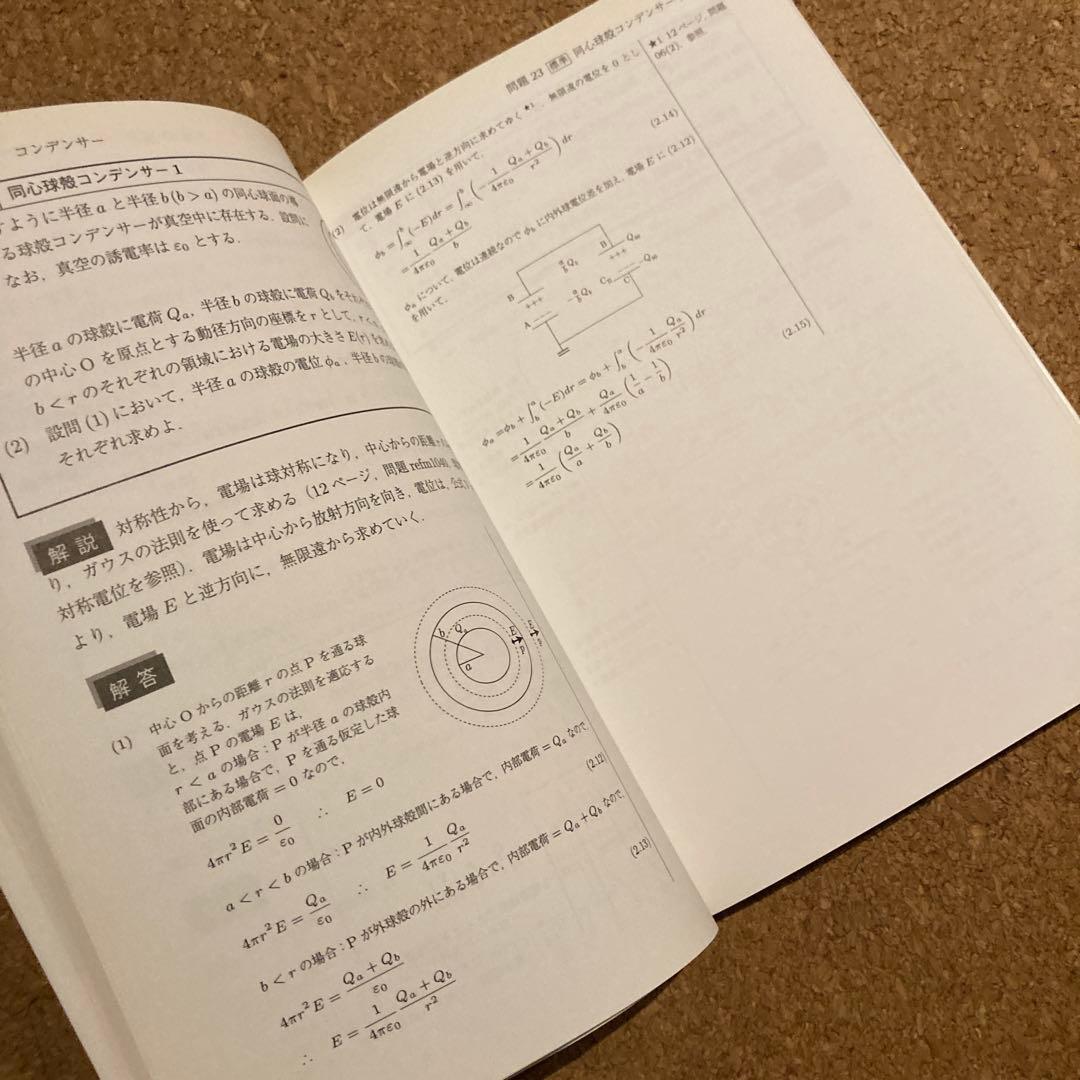 コンデンサー
同心球殻コンデンサー 1
すように半径 a と半径 b (b > a) の同心球面の
る球殻コンデンサーが真空中に存在する. 設問に
なお, 真空の誘電率は ε₀ とする.
半径 a の球殻に電荷 Qₐ, 半径 b の球殻に電荷 Q_b を
の中心 O を原点とする動径方向の座標を r として,
b < r のそれぞれの領域における電場の大きさ E(r) を
(2) 設問 (1) において, 半径 a の球殻の電位 φₐ, 半径 b の
それぞれ求めよ.
解説 対称性から, 電場は球対称になり, 中心からの距離
り, ガウスの法則を使って求める (12 ページ, 問題 refm1040,
対称電位を参照). 電場は中心から放射方向を向き, 電位は,
より, 電場 E と逆方向に, 無限遠から求めていく.
解答
(1) 中心 O からの距離 r の点 P を通る球
面を考える. ガウスの法則を適応する
と, 点 P の電場 E は,
r < a の場合：P が半径 a の球殻内
部にある場合で, P を通る仮定した球
面の内部電荷 = 0 なので,
4πr²E = 0/ε₀ ∴ E = 0
a < r < b の場合：P が内外球殻間にある場合で, 内部電荷 = Qₐ なので,
4πr²E = Qₐ/ε₀ ∴ E = 1/4πε₀ Qₐ/r² (2.12)
b < r の場合：P が外球殻の外にある場合で, 内部電荷 = Qₐ + Q_b なので,
4πr²E = (Qₐ + Q_b)/ε₀
∴ E = 1/4πε₀ (Qₐ + Q_b)/r² (2.13)
b Qₐ
a
E P
問題 23 標準 同心球殻コンデンサー
★1 12 ページ, 問題
06(2), 参照.
(2) 電位は無限遠から電場と逆方向に求めてゆく ★1. 無限遠の電位を 0 とし
て, 電場 E に (2.13) を用いて,
φ_b = ∫_∞^b (−E)dr = ∫_∞^b (−1/4πε₀ (Qₐ + Q_b)/r²) dr
= 1/4πε₀ (Qₐ + Q_b)/b (2.14)
φₐ について, 電位は連続なので φ_b に内外球電位差を加え, 電場 E に (2.12)
を用いて,
B +++
B +++
A
C
φₐ = φ_b + ∫_b^a (−E)dr = φ_b + ∫_b^a (−1/4πε₀ Qₐ/r²) dr
= 1/4πε₀ (Qₐ + Q_b)/b + Qₐ/4πε₀ (1/a − 1/b)
= 1/4πε₀ (Qₐ/a + Q_b/b) (2.15)